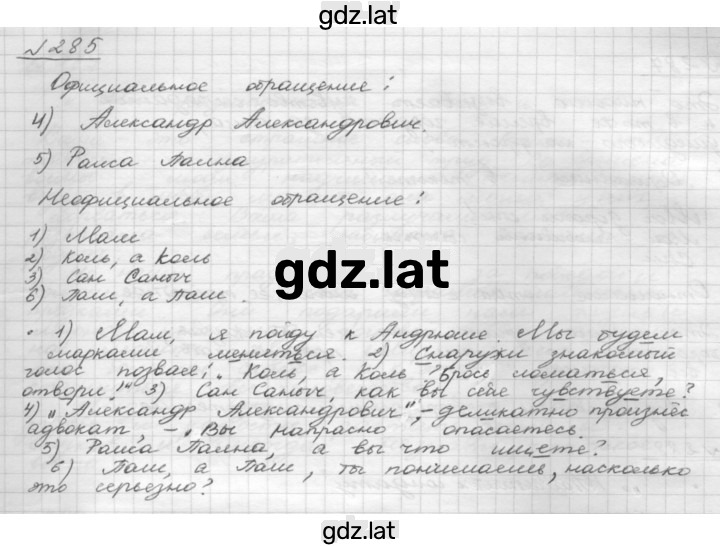 gdz.lat
№285
Официальное обращение:
4) Александр Александрович.
5) Раиса Пална
Неофициальное обращение:
1) Мам
2) Коль, а Коль
3) Сан Саныч
6) Паш, а Паш.
gdz.lat
• 1) Мам, я пойду к Андрюше. Мы будем
марками меняться. 2) Снаружи знакомый
голос позвал: "Коль, а Коль брось ломаться,
отвори!" 3) Сан Саныч, как вы себе чувствуете?
4) „Александр Александрович", – деликатно произнёс
адвокат, – „Вы напрасно опасаетесь.
5) Раиса Пална, а вы что ищете?
6) Паш, а Паш, ты понимаешь, насколько
это серьезно?
gdz.lat